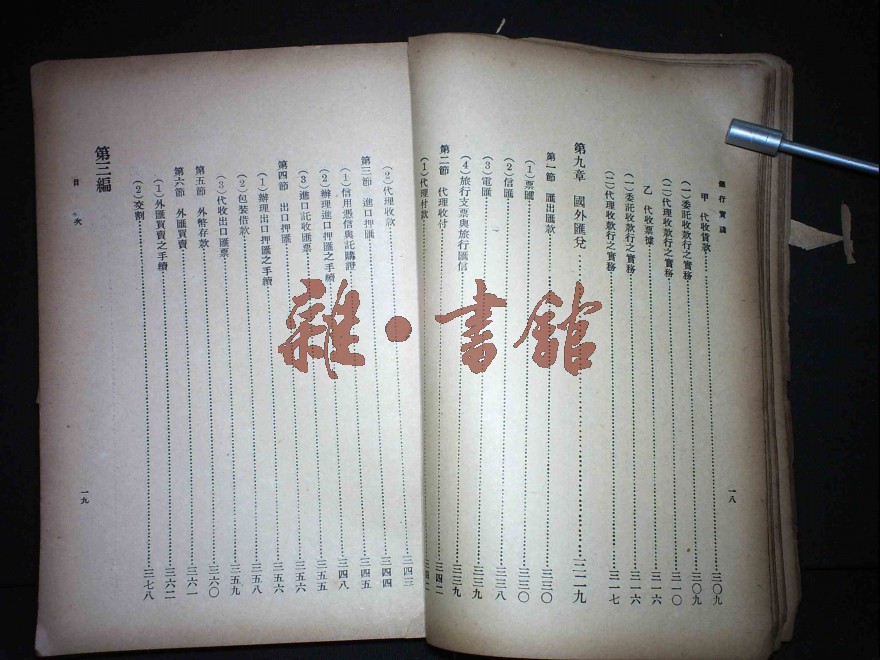 銀行實議
甲 代收貨款……三〇九
(一)委託收款行之實務……三〇九
(二)代理收款行之實務……三一〇
乙 代收票據……三一六
(一)委託收款行之實務……三一六
(二)代理收款行之實務……三一七
第九章 國外匯兌……三二九
第一節 匯出匯款……三三〇
(1)票匯……三三〇
(2)信匯……三三八
(3)電匯……三三九
(4)旅行支票與旅行匯信……三三九
第二節 代理收付……三四二
(1)代理付款……三四二
一八
(2)代理收款……三四三
第三節 進口押匯……三四四
(1)信用憑信與託購證……三四五
(2)辦理進口押匯之手續……三四八
(3)進口託收匯票……三五五
第四節 出口押匯……三五六
(1)辦理出口押匯之手續……三五六
(2)包裝借款……三五八
(3)代收出口匯票……三五九
第五節 外幣存款……三六〇
第六節 外匯買賣……三六一
(1)外匯買賣之手續……三六二
(2)交割……三七八
第三編
目次
一九
雜·書館